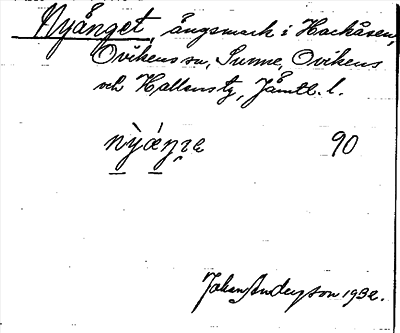 Nyånget, ängsmark i Hackåsen,
Ovikens sn, Sunne, Ovikens
och Hallens tg, Jämtl. l.
90
Johan Anderson 1932.